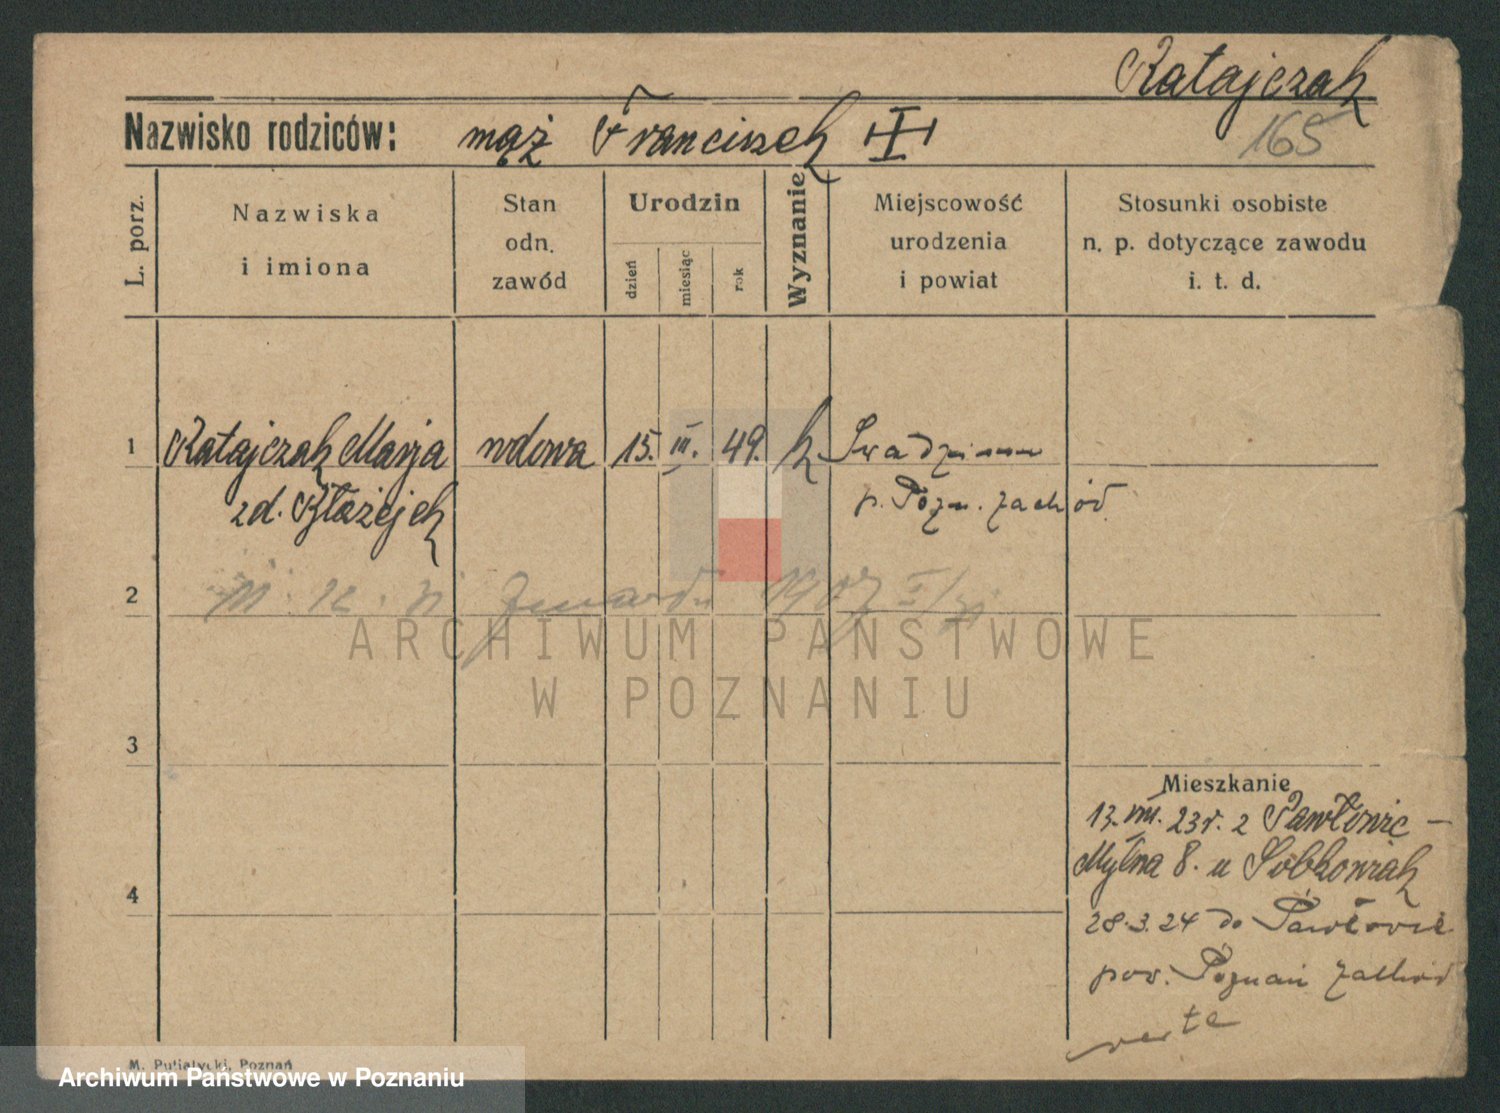 Ratajczak
165
Nazwisko rodziców: mąż Franciszek
L. porz.
Nazwiska
i imiona
Stan
odn.
zawód
Urodzin
dzień
miesiąc
rok
Wyznanie
Miejscowość
urodzenia
i powiat
Stosunki osobiste
n. p. dotyczące zawodu
i. t. d.
1 Ratajczak Marja wdowa 15. III. 49. k Swadzim
zd. Błażejek p. Pozn. zachód
2
ARCHIWUM PAŃSTWOWE
W POZNANIU
3
Mieszkanie
13. VIII. 23 r. z Pawłowic –
Mylna 8. u Sobkowiak
4
28.3.24 do Pawłowic
pow. Poznań zachód
verte
M. Putiatycki, Poznań
Archiwum Państwowe w Poznaniu